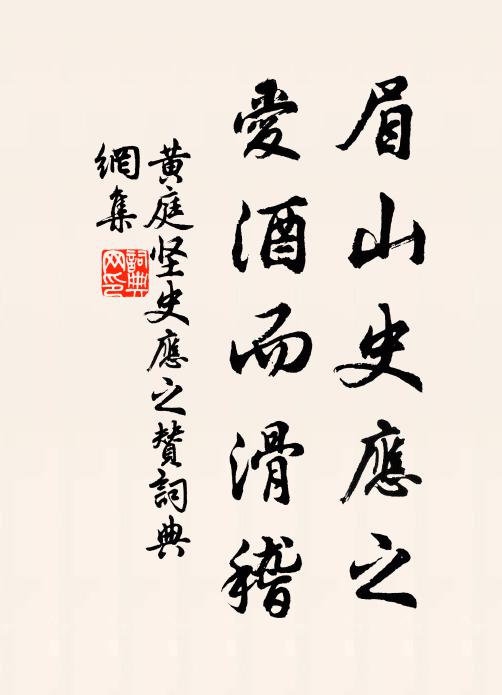 眉山史應之
愛酒而滑稽
黄庭坚史應之贊詞典
網集
詞典
网印